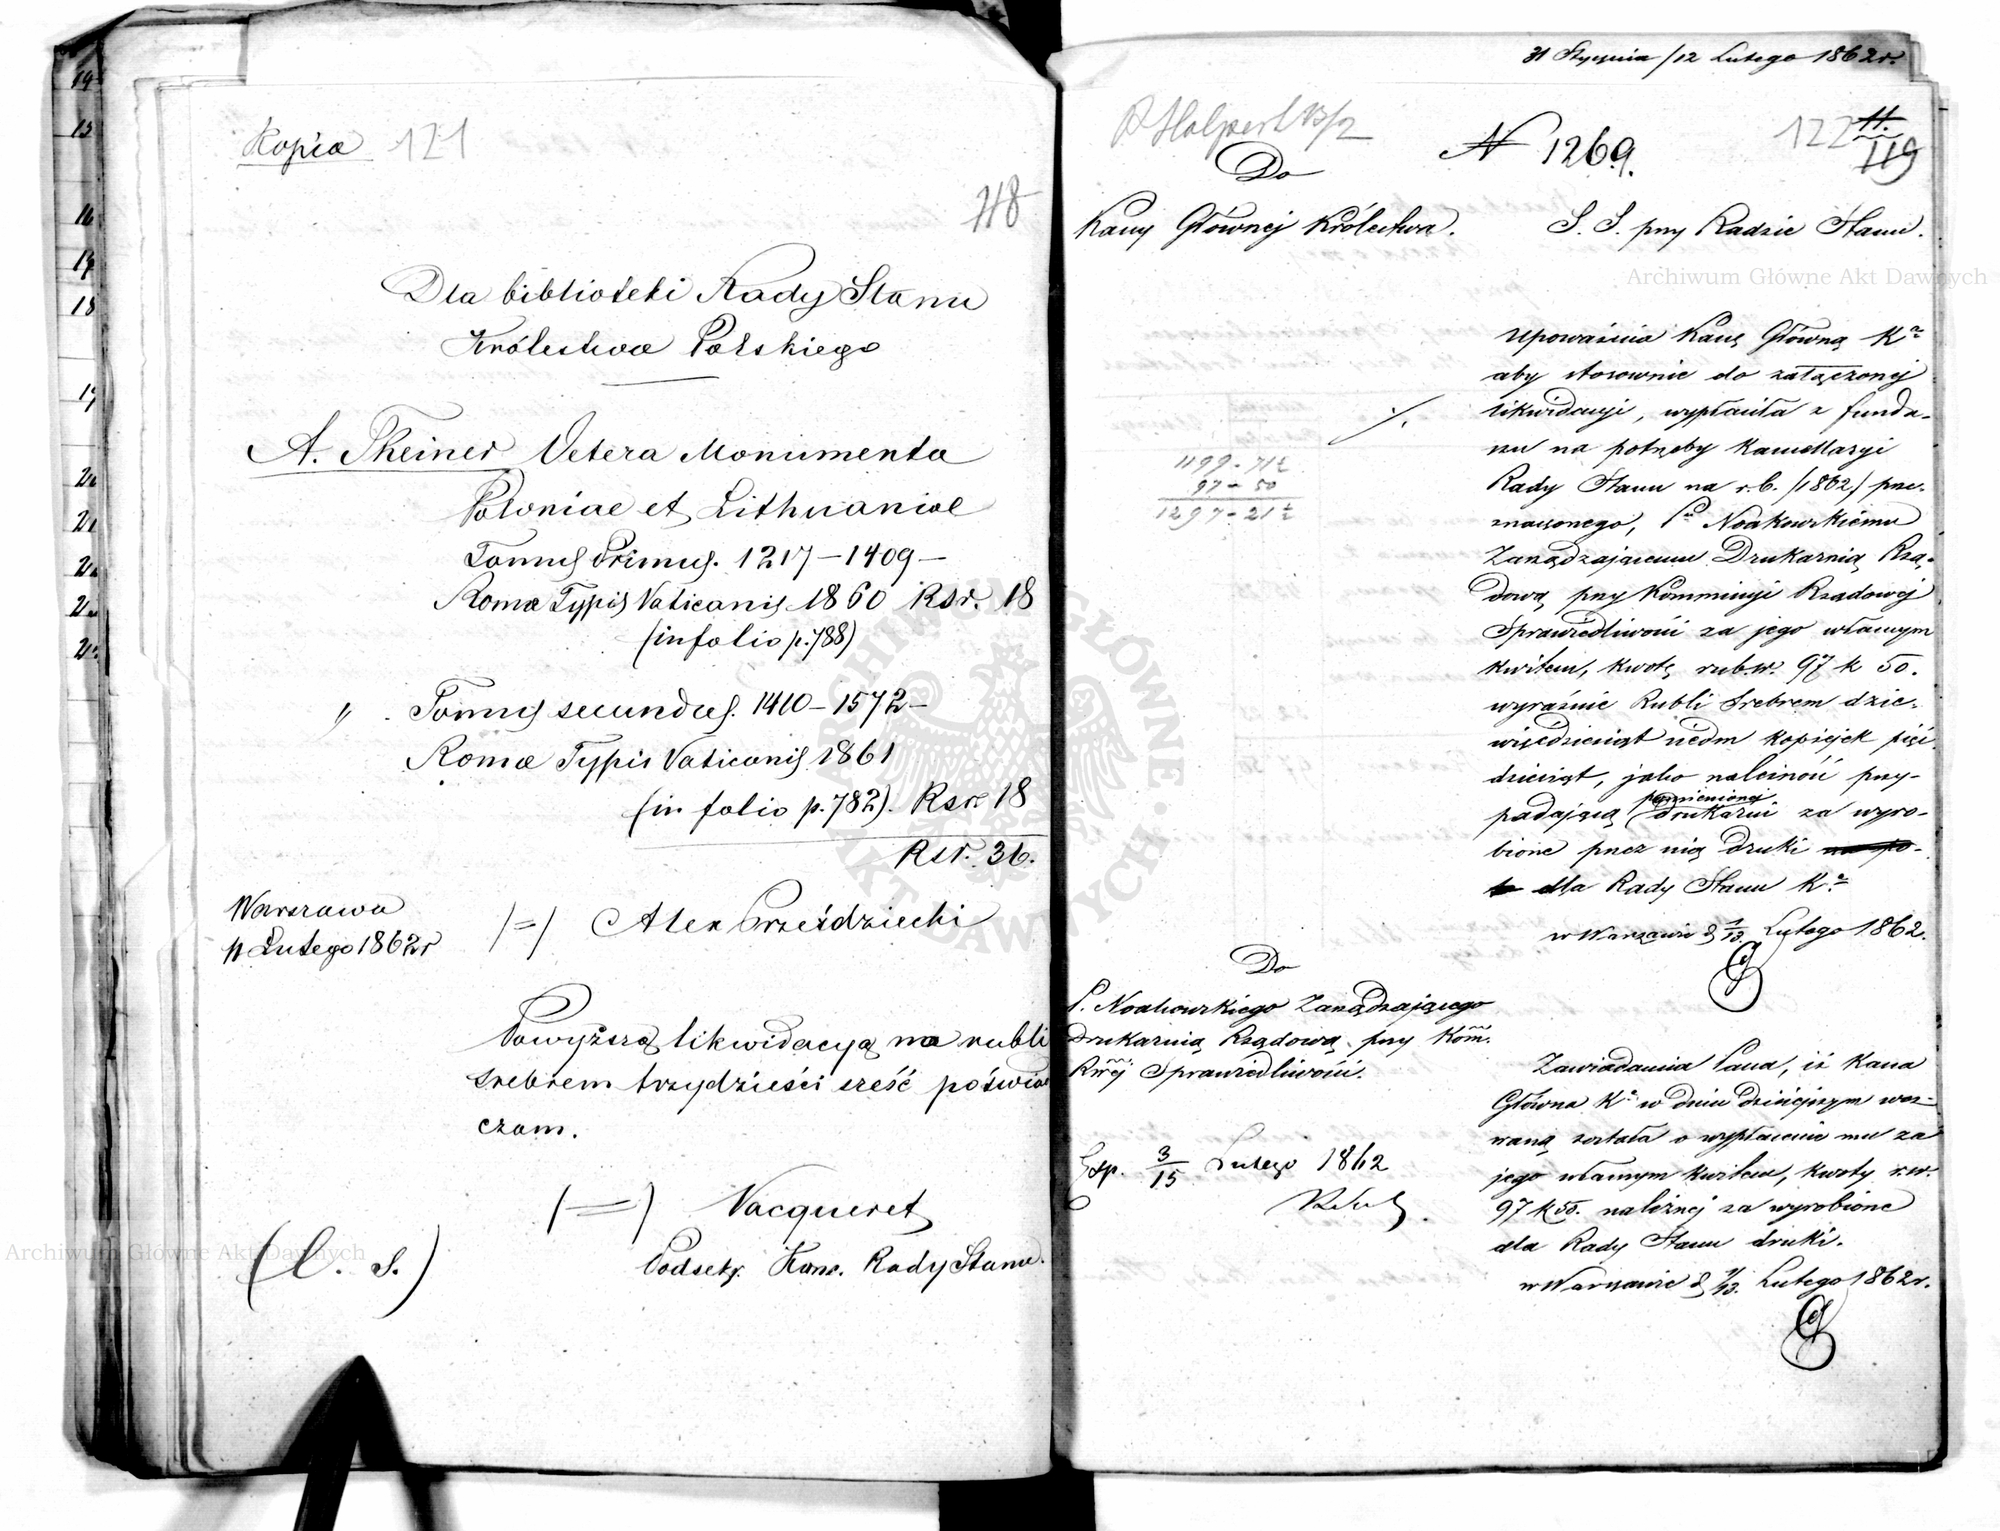 Kopia 121
118
Dla biblioteki Rady Stanu
Królestwa Polskiego
A. Theiner Vetera Monumenta
Poloniae et Lithuaniae
Tomus Primus. 1217–1409–
Romae Typis Vaticanis 1860 Rsr. 18
(in folio p. 788)
" . Tomus secundus. 1410–1572–
Romae Typis Vaticanis 1861
(in folio p. 782). Rsr 18
Rsr. 36.
Warszawa
11 Lutego 1862 r
/=/ Alex Przeździecki
Powyższą likwidacyą na rubli
srebrem trzydzieści sześć poświad
czam.
/=/ Vacqueret
Podsekr. Kanc. Rady Stanu.
(L. S.)
31 Stycznia /12 Lutego 1862 r.
P Halpert 13/2
N 1269.
122 11.
119
Do
Kassy Głównej Królestwa.
S. S. przy Radzie Stanu.
Upoważnia Kassę Główną Kr
aby stosownie do załączonej
likwidacyi, wypłaciła z fundu-
szu na potrzeby Kancellaryi
Rady Stanu na r. b. /1862/ prze-
znaczonego, Pu Noakowskiemu
Zarządzającemu Drukarnią Rzą-
dową przy Kommissyi Rządowej
Sprawiedliwości za jego własnym
kwitem, kwotę rub.sr. 97 k 50.
wyraźnie Rubli Srebrem dzie-
więdziesiąt siedm kopiejek pięć
dziesiąt, jako należność przy-
padającą pomienionej drukarni za wyro-
bione przez nią druki
dla Rady Stanu Kr
w Warszawie d 1/13 Lutego 1862.
1199 - 71½
97 - 50
1297 - 21½
Do
P. Noakowskiego Zarządzającego
Drukarnią Rządową przy Kom.
Rwéj Sprawiedliwości.
Zawiadamia Pana, iż Kassa
Główna Kr w dniu dzisiejszym wez-
waną została o wypłacenie mu za
jego własnym kwitem, kwoty r.sr.
97 k 50. należnej za wyrobione
dla Rady Stanu druki.
w Warszawie d 1/13. Lutego 1862 r.
Exp. 3/15 Lutego 1862
Archiwum Główne Akt Dawnych
Archiwum Główne Akt Dawnych
ARCHIWUM GŁÓWNE AKT DAWNYCH